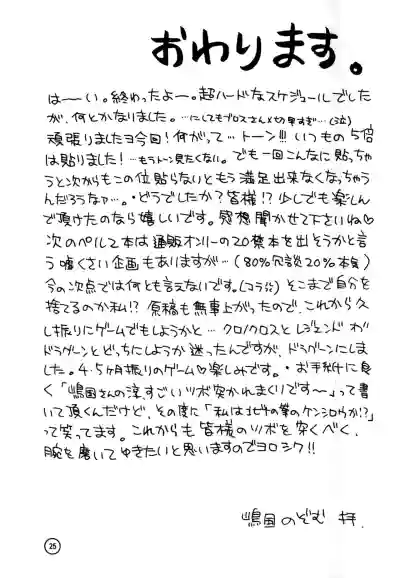 おわります。
は〜い。終わったよー。超ハードなスケジュールでした
が、何とかなりました。…にしてもプロスさん×切早すぎ…(泣)
頑張りましたヨ今回!何がって…トーン!!!いつもの5倍
は貼りました!…もうトーン見たくない。でも一回こんなに貼っちゃ
うと次からもこの位貼らないともう満足出来なくなっちゃう
んだろうなァ…。・どうでしたか?皆様!?少しでも楽しん
で頂けたのなら嬉しいです。感想聞かせて下さいね♡
次のペルソナ本は通販オンリーの20禁本を出そうかと言
う嘘くさい企画もありますが…(80%冗談20%本気)
今の次点では何とも言えないです。(コラコラ)そこまで自分を
捨てるのか私!?原稿も無事上がったので、これから久
し振りにゲームでもしようかと…クロノクロスとレジェンド オブ
ドラグーンとどっちにしようか迷ったんですが、ドラグーンにしま
した。4・5ヶ月振りのゲーム♡楽しみです。・お手紙に良
く「嶋国さんの涼すごいツボ突かれまくりです〜」って書
いて頂くんだけど、その度に「私は北斗の拳のケンシロウか!?」
って笑ってます。これからも皆様のツボを突くべく、
腕を磨いてゆきたいと思いますのでヨロシク!!
嶋国のぞむ 拝.
25